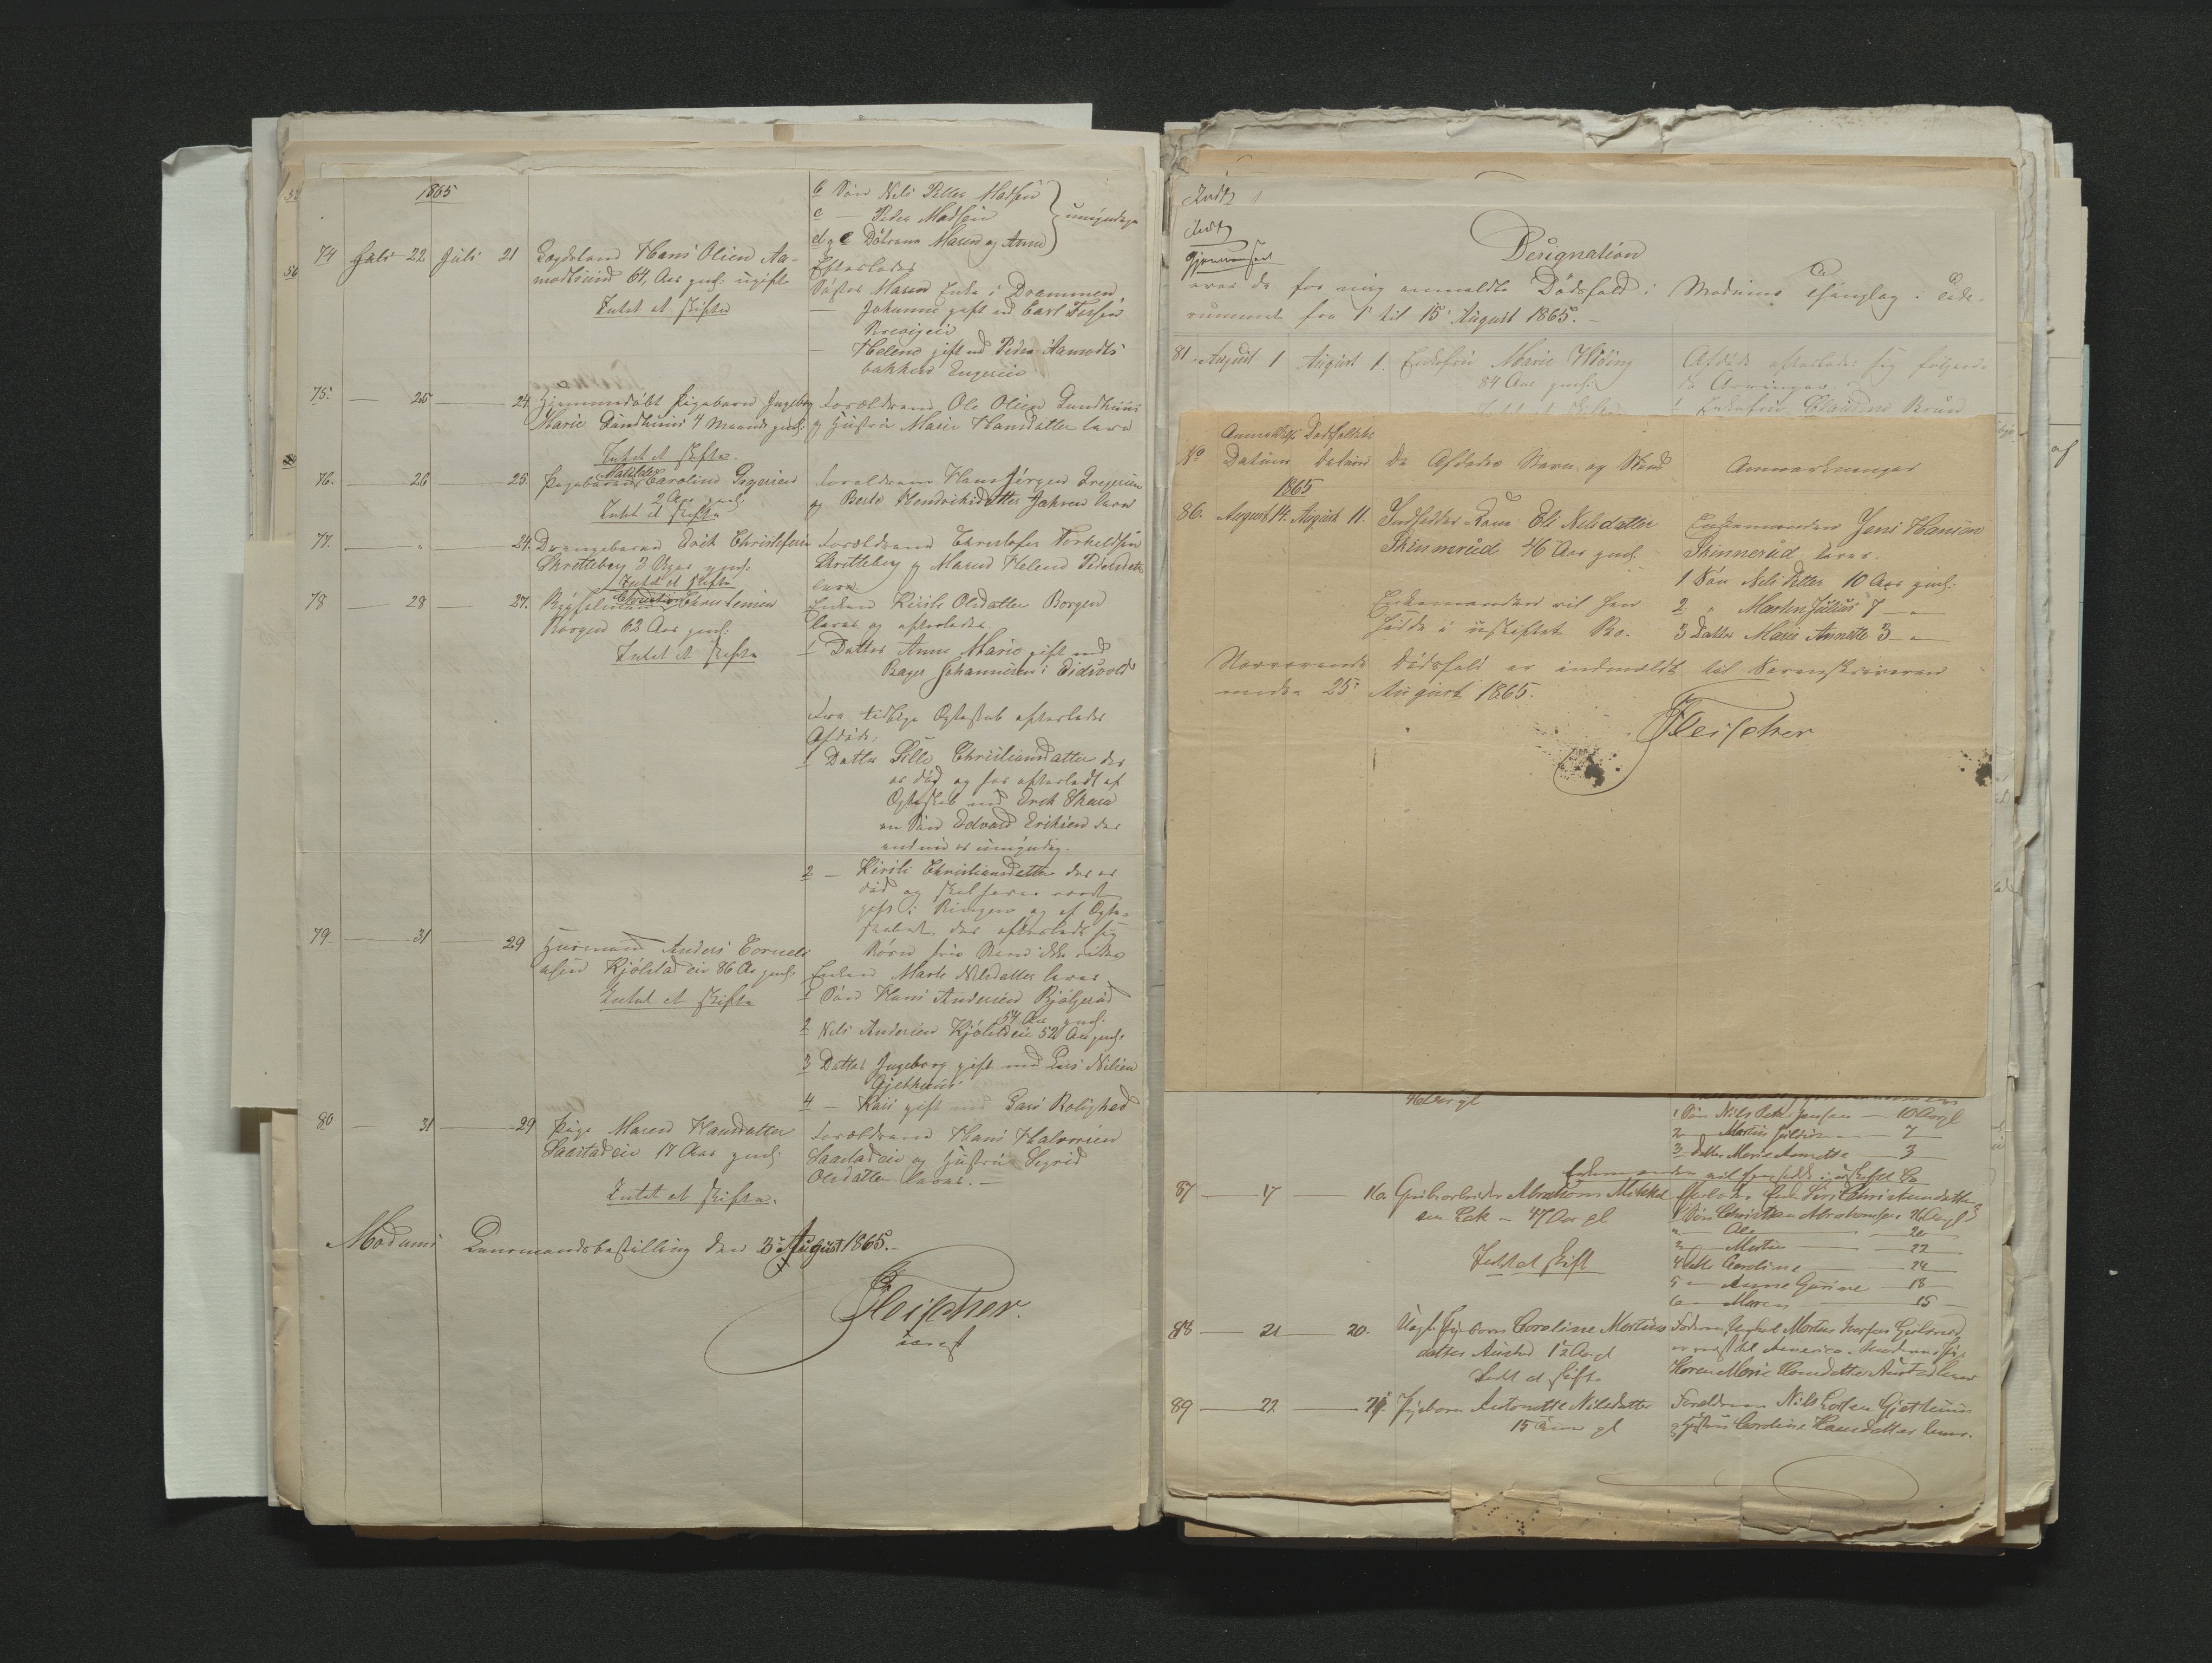 1865
b Søn Nils Petter Madsen
c — Peder Madsen
d og e Døttrene Maren og Anne
umyndige
74 Juli 22 Juli 21 Hans Olsen Aa-
64 Aar gml. ugift
Intet at skifte
Efterlader
Søster Maren Enke i Drammen
— Johanne gift med Carl
— Helene gift med Peder Aamodts
bakken Engereie
75 — 25 — 24 Hjemmedøbt Pigebarn Ingeborg
Marie Sundhuus 4 Maaneder gml.
Intet at skifte.
Forældrene Ole Olsen Sundhuus
og Hustru Marie Hansdatter lever
76. — 26 — 25 Pigebarnet Mathilde Caroline
2 Aar gml.
Intet at skifte
Forældrene Hans Jørgen
og Berte Hendriksdatter Jahren lever
77. — " — 24. Drengebarn Christofersen
Skretteberg 3 Uger gml.
Intet at skifte
Forældrene Christofer Torkeldsen
Skretteberg og Maren Helene Pedersdatter
lever.
78 — 28 — 27. Christian Christensen
Borgen 62 Aar gml.
Intet at skifte
Enken Kirsti Olsdatter Borgen
lever og efterlader
1 Datter Anne Marie gift med
Bager Johannesen i Eidsvold
Fra tidligere Ægteskab efterlader
Afdøde:
1 Datter Sille Christiansdatter der
er død og har efterladt af
Ægteskab med Erik
en Søn Edvard Eriksen der
endnu er umyndig.
2 — Kirsti Christiansdatter der er
død og skal have været
gift i Ringen og af Ægte-
skabet der efterladt sig
Børn hvis Navn ikke vides
79 — 31 — 29 Husmand Anders Corneli-
usen Kjølstadeie 86 Aar gml.
Intet at skifte
Enken Marte Nilsdatter lever
1 Søn Hans Andersen
54 Aar gml.
2 Nils Andersen Kjølstadeie 52 Aar gml.
3 Datter Ingeborg gift med Lars Nilsen
Gjethuus
4 — Kari gift med Lars Rolighed
80 — 31 — 29 Pige Maren Hansdatter
Saastadeie 17 Aar gml.
Intet at skifte.
Forældrene Hans Halvorsen
Saastadeie og Hustru Sigrid
Olsdatter lever. —
Modums Lensmandsbestilling den 3 August 1865.
Fleischer.
Designation
over de for mig anmeldte Dødsfald i Modums Thinglag i Tids-
rummet fra 1 til 15 August 1865. —
81 August 1 August 1. Enkefru Marie
84 Aar gml.
Afdøde efterlader sig følgende
Arvinger.
1 Enkefru Claudine Bruun
No Anmeldelses Datum Dødsfaldets Datum De Afdødes Navn og Stand Anmærkninger
1865
86. August 14. August 11. Kone Eli Nilsdatter
Skinnerud 46 Aar gml.
Enkemanden Jens Hansen
Skinnerud lever.
1 Søn Nils Petter 10 Aar gml.
2 " Martin Julius 7 — "
3 Datter Marie Annette 3 — "
Enkemanden vil hen-
sidde i uskiftet Bo.
Nærværende Dødsfald er indmeldt til Sorenskriveren
25 August 1865.
Fleischer
46 Aar gl
1 Søn Nils Peter Jensen — 10 Aar gl
2 — Martin Julius — 7 —
3 Datter Marie Annette — 3
Enkemanden vil hensidde i uskiftet Bo
87 — 17 — 16. Abraham Mikkel-
sen Eek — 47 Aar gl
Intet at skifte
Efterlader Enke Siri Christensdatter
1 Søn Christian Abrahamsen 26 Aar gl
2 — Ole — 20
3 — Martin — 22
4 Datter Caroline — 24
5 — Anne Gurine — 18
6 — Maren — 15 —
88 — 21 — 20. Caroline Martins-
datter 1½ Aar gl
Intet at skifte
er reist til America. Moderen Pige
Karen Marie Hansdatter lever
89 — 22 — 21. Pigebarn Antonette Nilsdatter
15 gl
Forældrene Nils Gjethuus
og Hustru Caroline Hansdatter lever.